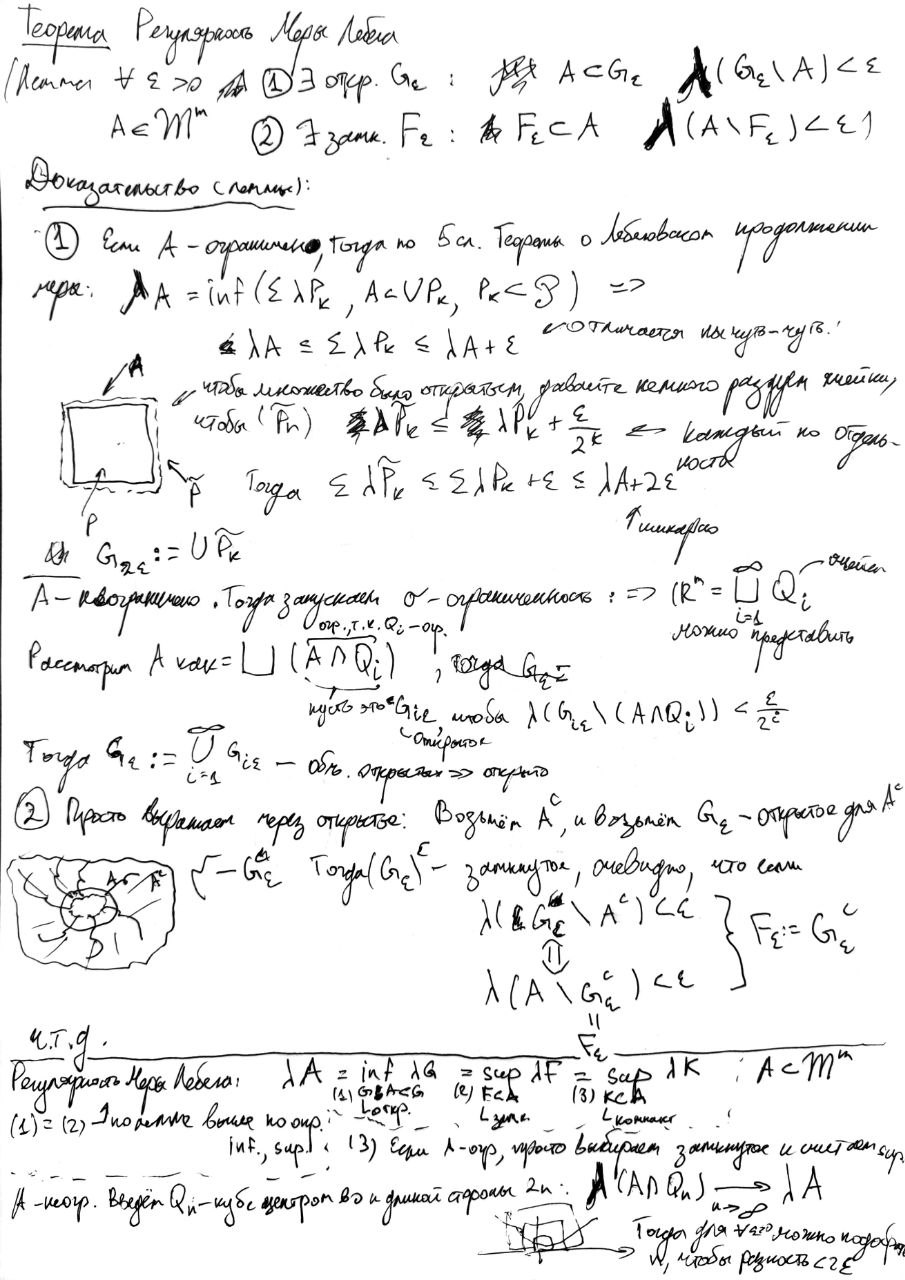 Теорема Регулярность Меры Лебега
(Лемма ∀ ε >0 ① ∃ откр. Gε : A⊂Gε λ(Gε\A)<ε
A∈𝔐ᵐ ② ∃ замк. Fε : Fε⊂A λ(A\Fε)<ε)
Доказательство (леммы):
① Если A - ограничено, тогда по 5 сл. Теоремы о Лебеговском продолжении
меры: λA = inf(Σ λPₖ , A⊂∪Pₖ, Pₖ⊂𝒫) =>
λA ≤ ΣλPₖ ≤ λA+ε отличается на чуть-чуть!
A
чтобы множество было открытым, давайте немного раздуем ячейки,
чтобы (P̃n) λP̃ₖ ≤ λPₖ + ε/2ᵏ ← каждый по отдель-
ности
P̃
P
Тогда ΣλP̃ₖ ≤ ΣλPₖ+ε ≤ λA+2ε
↑шикарно
G₂ε := ∪P̃ₖ
A - неограничено. Тогда запускаем σ-ограниченность : => ℝᵐ = ⨆ᵢ₌₁^∞ Qᵢ ячейки
можно представить
огр., т.к. Qᵢ - огр.
Рассмотрим A как = ⨆ (A∩Qᵢ) , тогда
пусть это Gᵢε, чтобы λ(Gᵢε\(A∩Qᵢ)) < ε/2ⁱ
открытое
Тогда Gε := ∪ᵢ₌₁^∞ Gᵢε - объ. открытых => открыто
② Просто выражаем через открытые: Возьмём Aᶜ, и возьмём Gε - открытое для Aᶜ
A Aᶜ
- Gε Тогда (Gε)ᶜ - замкнутое, очевидно, что если
λ(Gε \ Aᶜ) <ε
⇕
λ(A \ Gεᶜ) <ε } Fε:= Gεᶜ
=
Fε
ч.т.д.
Регулярность Меры Лебега: λA = inf λG = sup λF = sup λK ; A⊂𝔐ᵐ
(1) G: A⊂G (2) F⊂A (3) K⊂A
откр. замк. компакт
(1)=(2) - по лемме выше по опр.
inf., sup. (3) Если A - огр, просто выбираем замкнутое и считаем sup.
A - неогр. Введём Qn - куб с центром в 0 и длиной стороны 2n: λ(A∩Qn) → λA
n→∞
Тогда для ∀ε>0 можно подобрать
n, чтобы разность <2ε